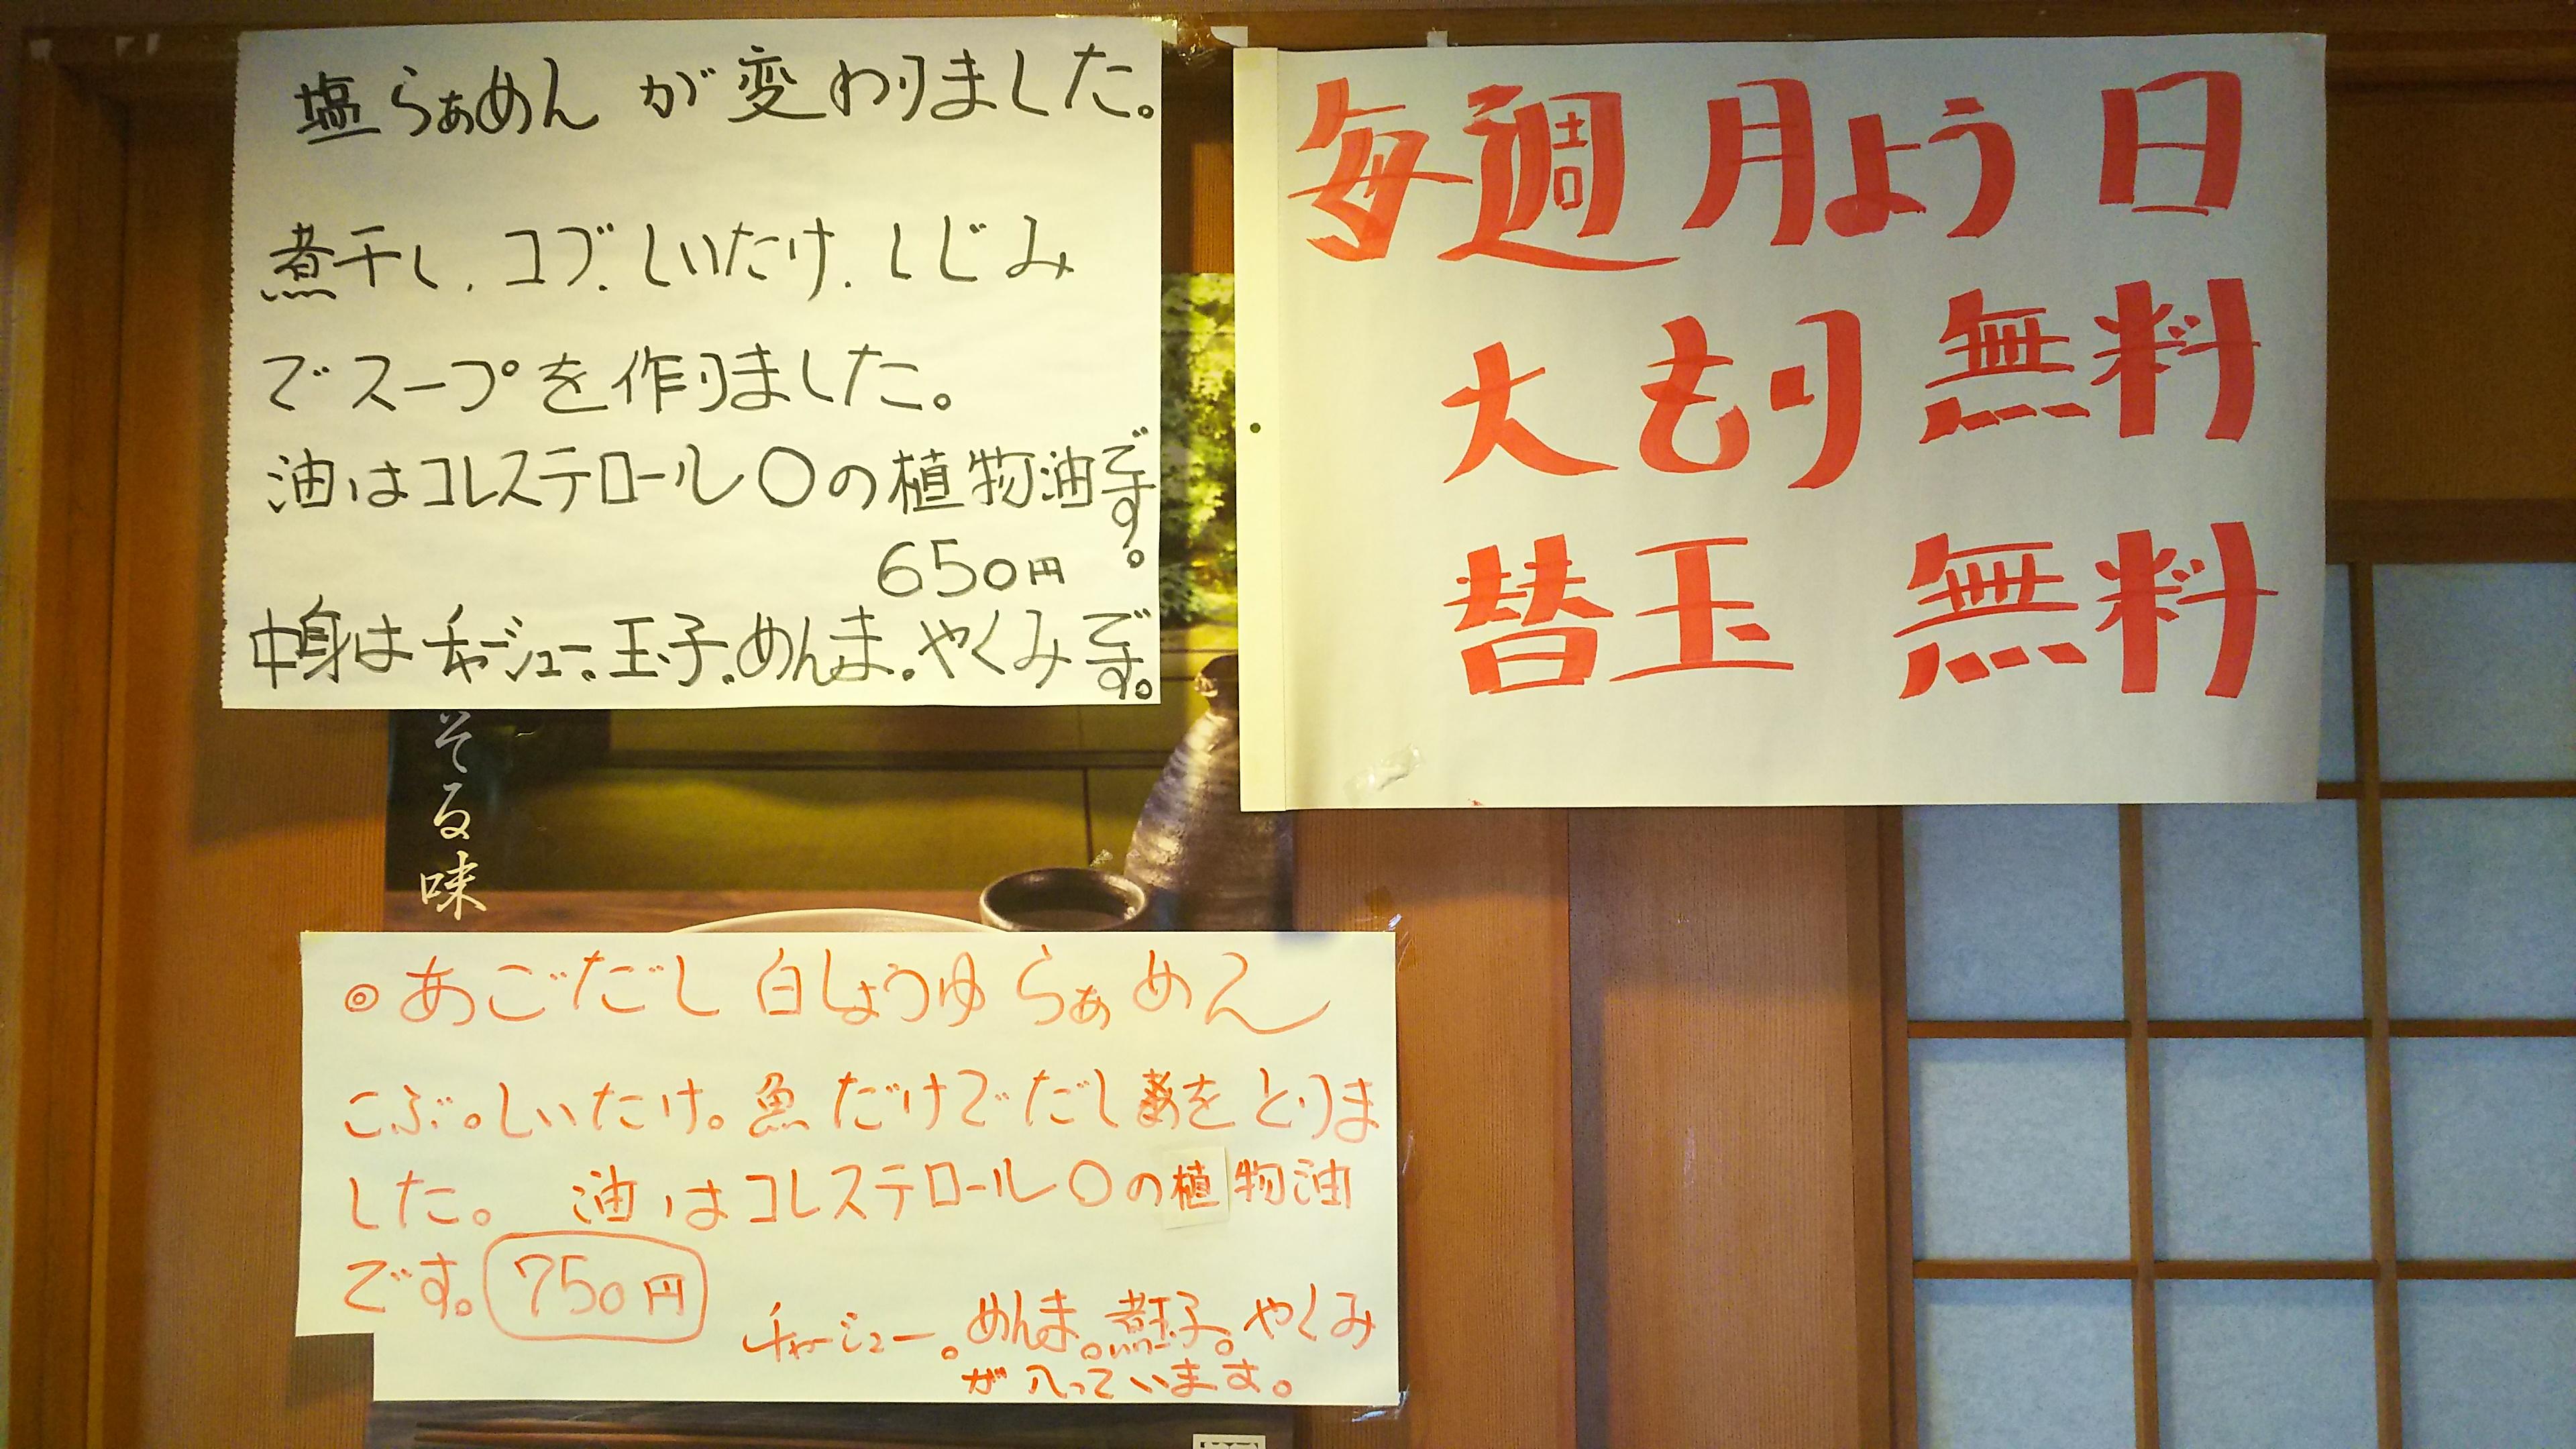 塩らぁめんが変わりました。
煮干し、コブ、しいたけ、しじみ
でスープを作りました。
油はコレステロール〇の植物油です。
650円
中身はチャーシュー、玉子、めんま。やくみです。
毎週月よう日
大もり無料
替玉 無料
そる味
◎あごだし白しょうゆらぁめん
こぶ。しいたけ。魚だけでだしをとりま
した。 油はコレステロール〇の植物油
です。750円
チャーシュー。めんま。煮玉子。やくみ
が入っています。